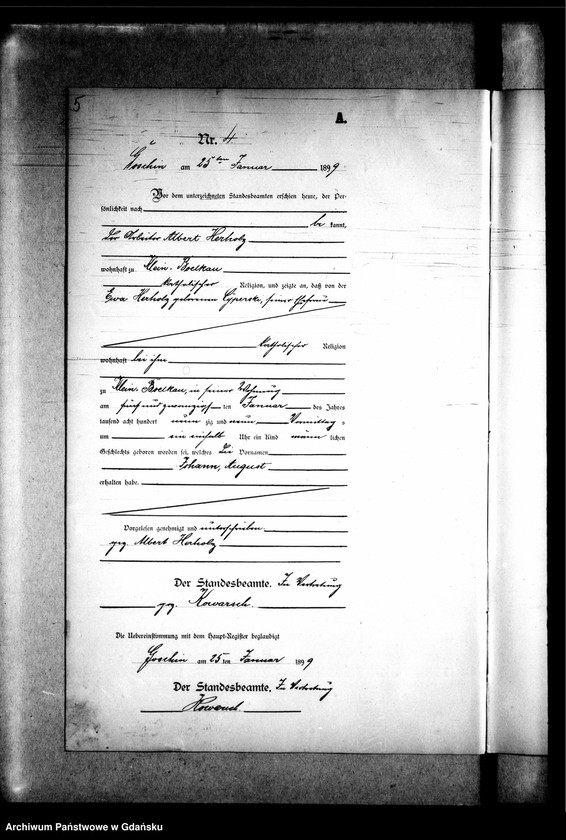 5
A.
Nr. 4
Goschin am 25ten Januar 1899
Vor dem unterzeichneten Standesbeamten erschien heute, der Per-
sönlichkeit nach
be kannt,
der Arbeiter Albert Herholz
wohnhaft zu Klein-Boelkau
katholischer Religion, und zeigte an, daß von der
Eva Herholz geborenen seiner Ehefrau
katholischer Religion
wohnhaft bei ihm
zu Klein-Boelkau, in seiner Wohnung
am fünf und zwanzigsten Januar des Jahres
tausend acht hundert neun zig und neun Vormittags
um ein einhalb Uhr ein Kind männlichen
Geschlechts geboren worden sei, welches die Vornamen
Johann, August
erhalten habe.
Vorgelesen genehmigt und unterschrieben
gez. Albert Herholz
Der Standesbeamte. In Vertretung
gez. Kowarsch.
Die Uebereinstimmung mit dem Haupt-Register beglaubigt
Goschin am 25 ten Januar 1899
Der Standesbeamte. In Vertretung
Kowarsch.
Archiwum Państwowe w Gdańsku